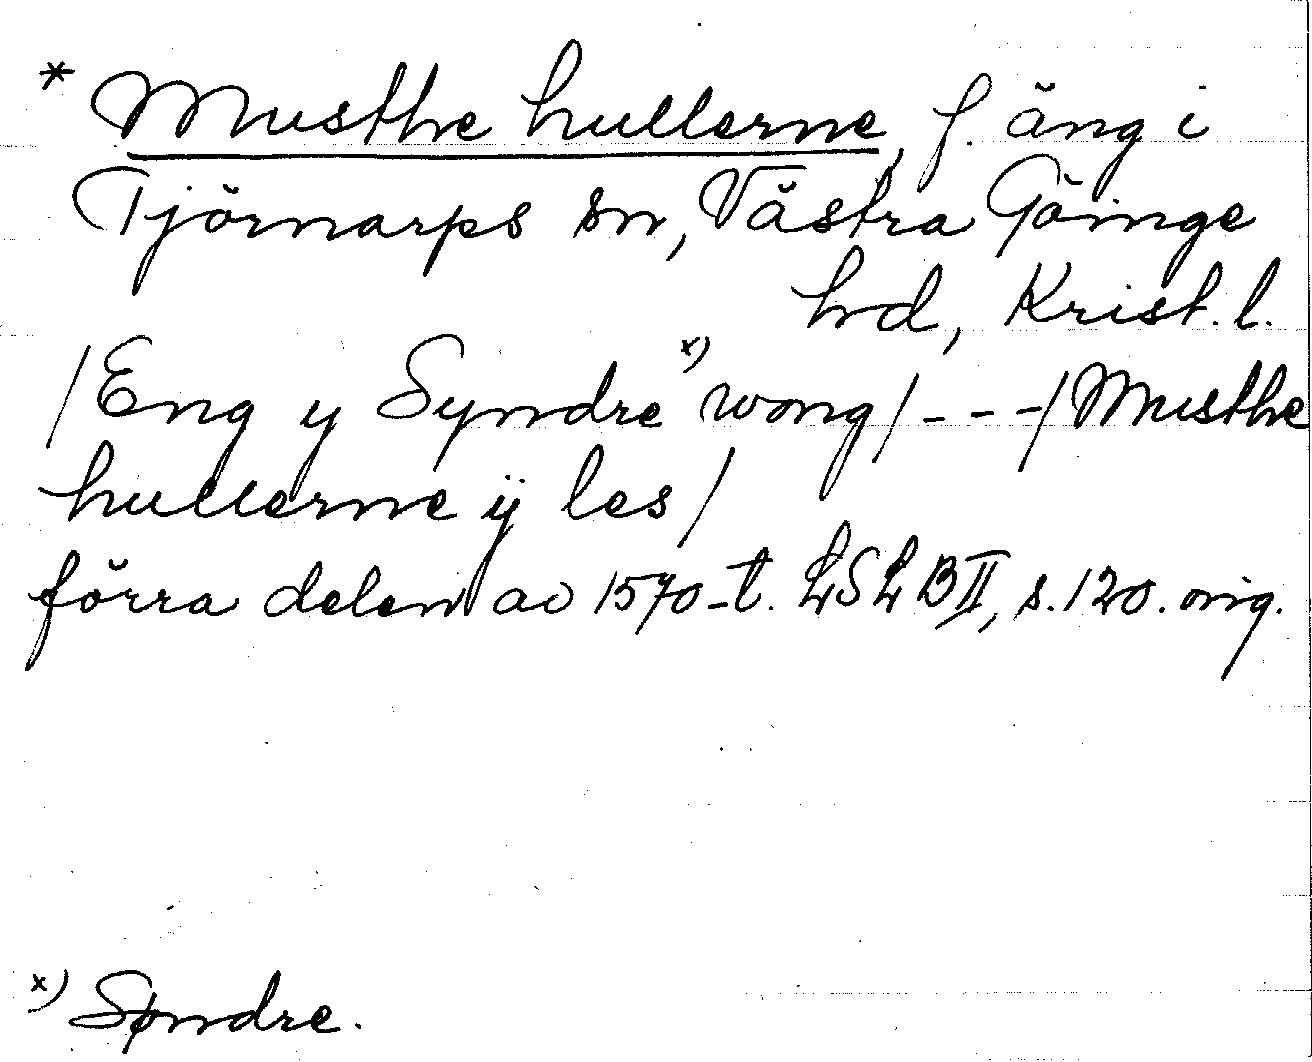 * Musthe hullerne, f. äng i
Tjörnarps sn, Västra Göinge
hd, Krist. l.
/Eng y Syndre x) wong/---/Musthe
hullerne ÿ les/
förra delen av 1570-t. LSLB II, s. 120. orig.
x) Søndre.